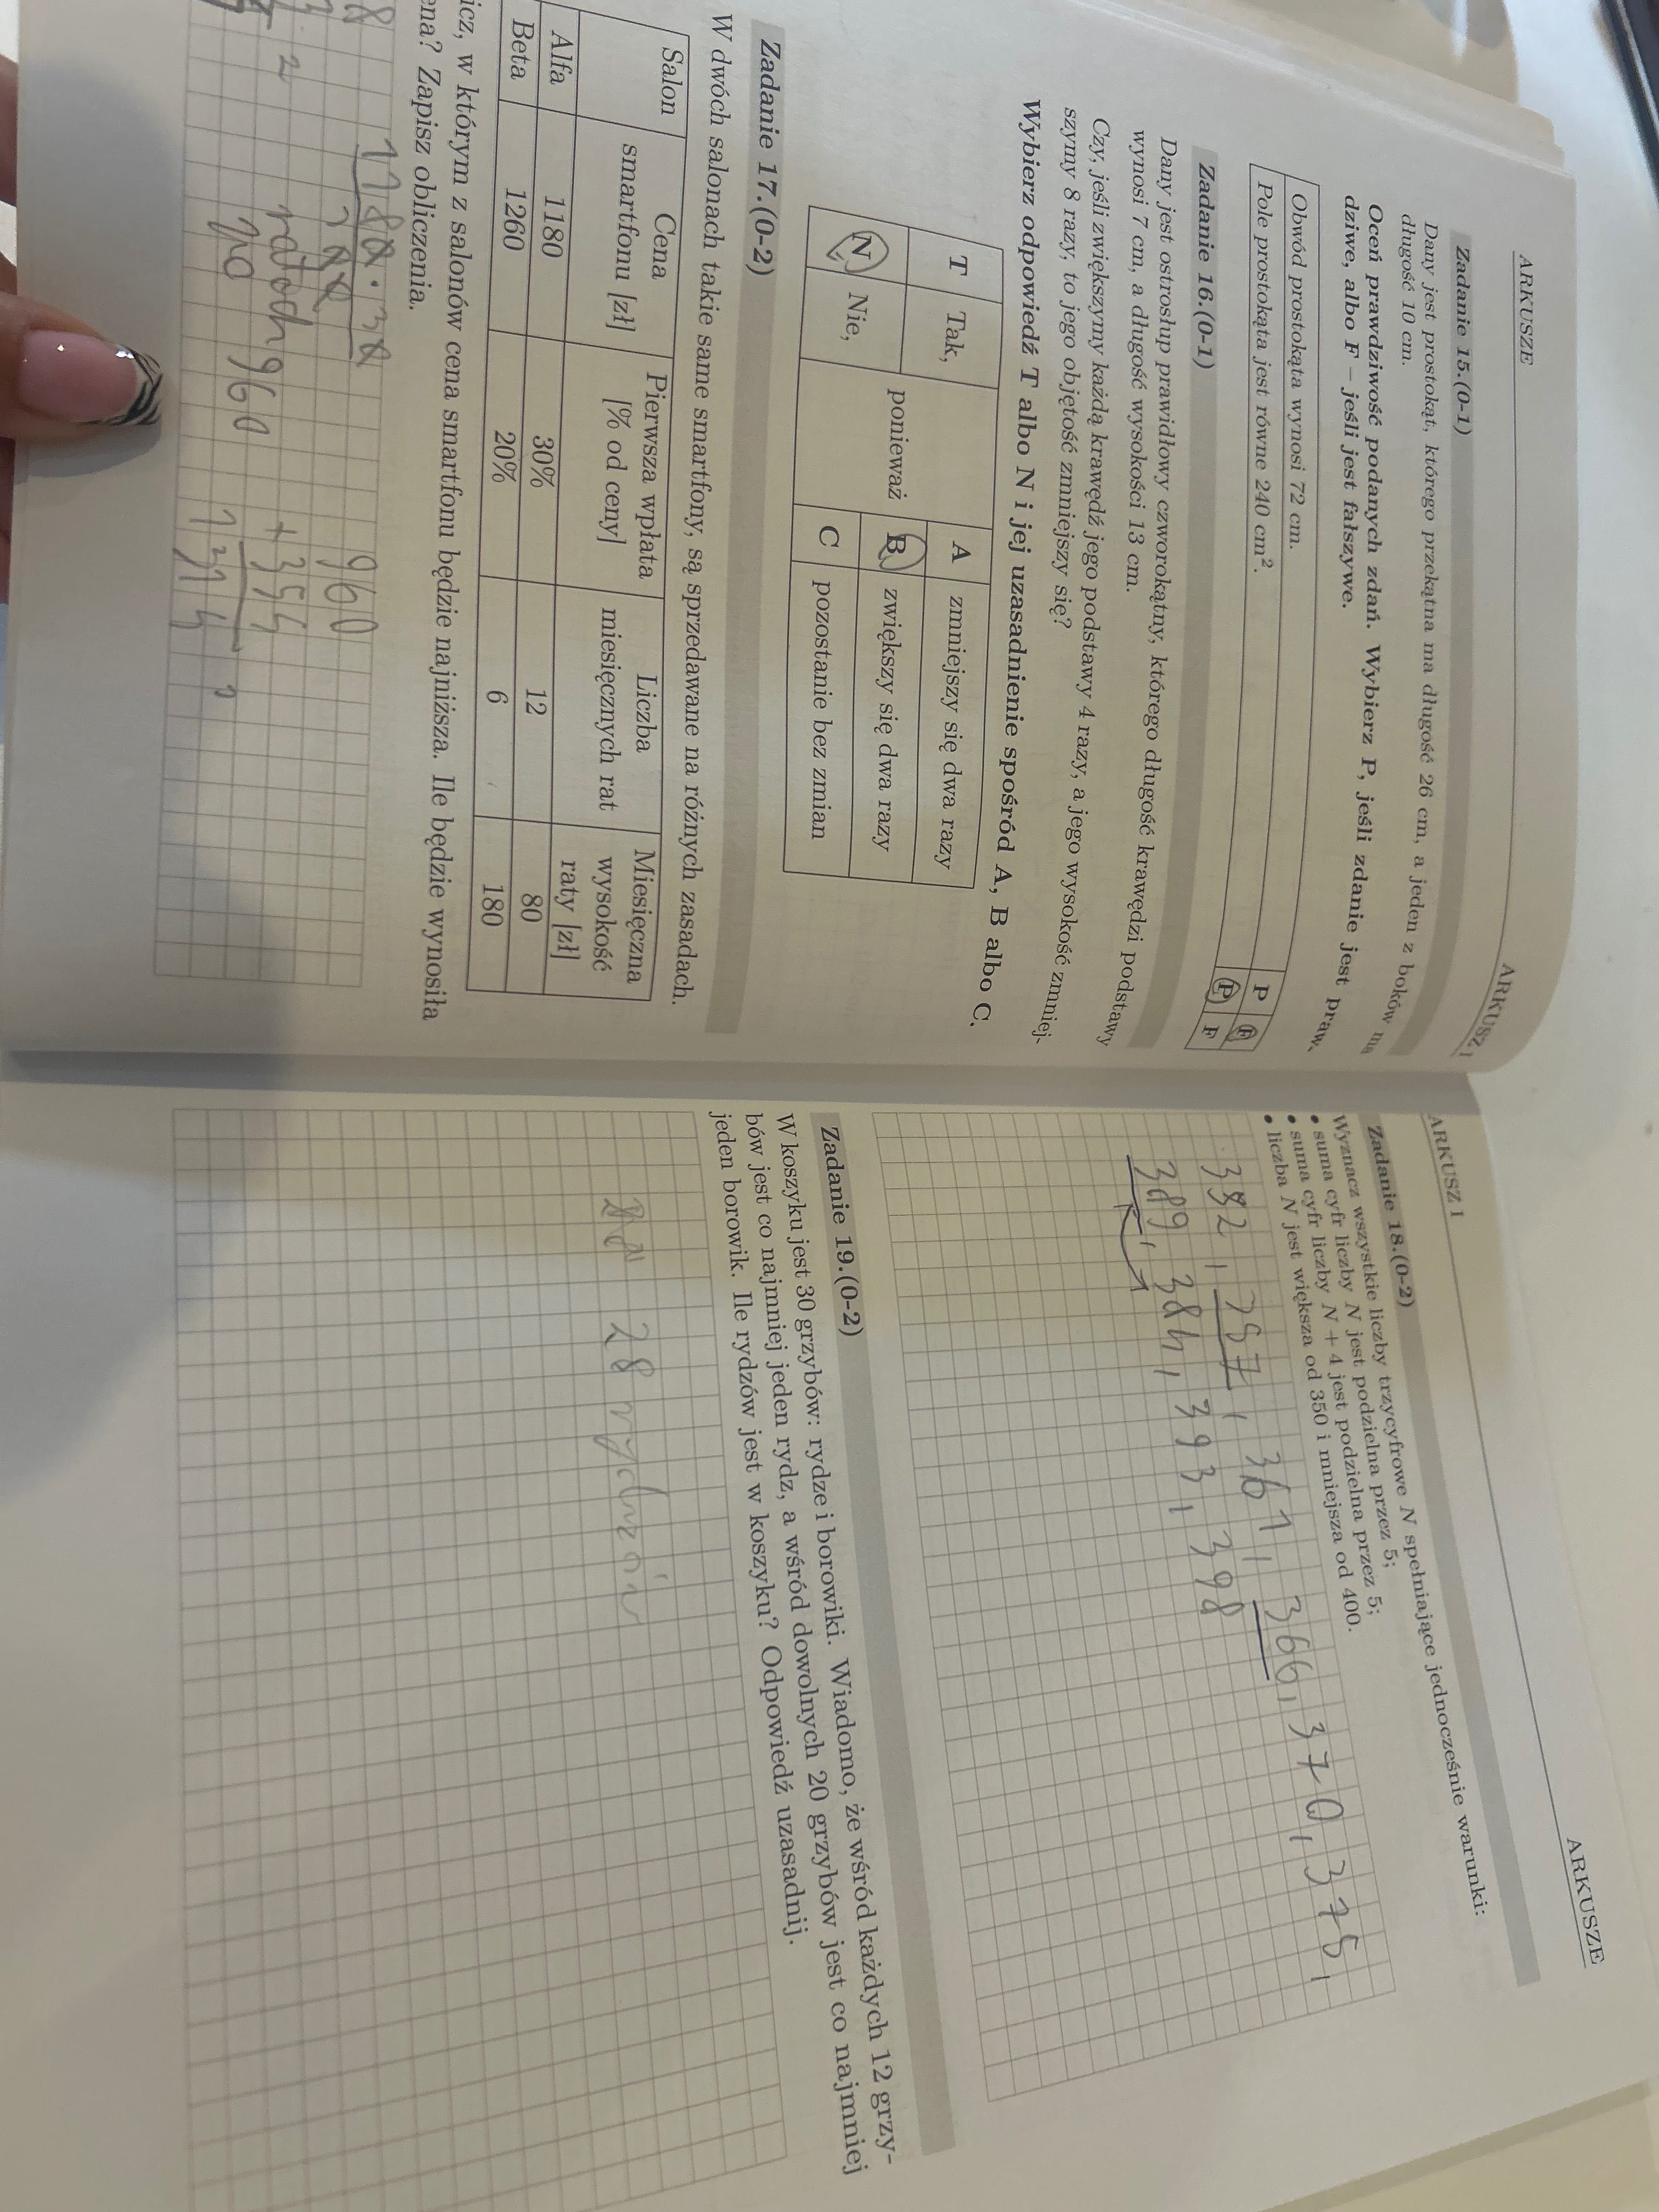 ARKUSZE
ARKUSZ I
Zadanie 15.(0-1)
Dany jest prostokąt, którego przekątna ma długość 26 cm, a jeden z boków ma
długość 10 cm.
Oceń prawdziwość podanych zdań. Wybierz P, jeśli zdanie jest praw-
dziwe, albo F – jeśli jest fałszywe.
Obwód prostokąta wynosi 72 cm. P F
Pole prostokąta jest równe 240 cm². P F
Zadanie 16.(0-1)
Dany jest ostrosłup prawidłowy czworokątny, którego długość krawędzi podstawy
wynosi 7 cm, a długość wysokości 13 cm.
Czy, jeśli zwiększymy każdą krawędź jego podstawy 4 razy, a jego wysokość zmniej-
szymy 8 razy, to jego objętość zmniejszy się?
Wybierz odpowiedź T albo N i jej uzasadnienie spośród A, B albo C.
T Tak,
N Nie,
ponieważ
A zmniejszy się dwa razy
B zwiększy się dwa razy
C pozostanie bez zmian
Zadanie 17.(0-2)
W dwóch salonach takie same smartfony, są sprzedawane na różnych zasadach.
Salon
Cena
smartfonu [zł]
Pierwsza wpłata
[% od ceny]
Liczba
miesięcznych rat
Miesięczna
wysokość
raty [zł]
Alfa 1180 30% 12 80
Beta 1260 20% 6 180
icz, w którym z salonów cena smartfonu będzie najniższa. Ile będzie wynosiła
ena? Zapisz obliczenia.
960
+354
1314
960
ARKUSZ I
ARKUSZE
Zadanie 18.(0-2)
Wyznacz wszystkie liczby trzycyfrowe N spełniające jednocześnie warunki:
• suma cyfr liczby N jest podzielna przez 5;
• suma cyfr liczby N + 4 jest podzielna przez 5;
• liczba N jest większa od 350 i mniejsza od 400.
352, 357, 361, 366, 370, 375,
389, 384, 393, 398
Zadanie 19.(0-2)
W koszyku jest 30 grzybów: rydze i borowiki. Wiadomo, że wśród każdych 12 grzy-
bów jest co najmniej jeden rydz, a wśród dowolnych 20 grzybów jest co najmniej
jeden borowik. Ile rydzów jest w koszyku? Odpowiedź uzasadnij.
28 rydzów